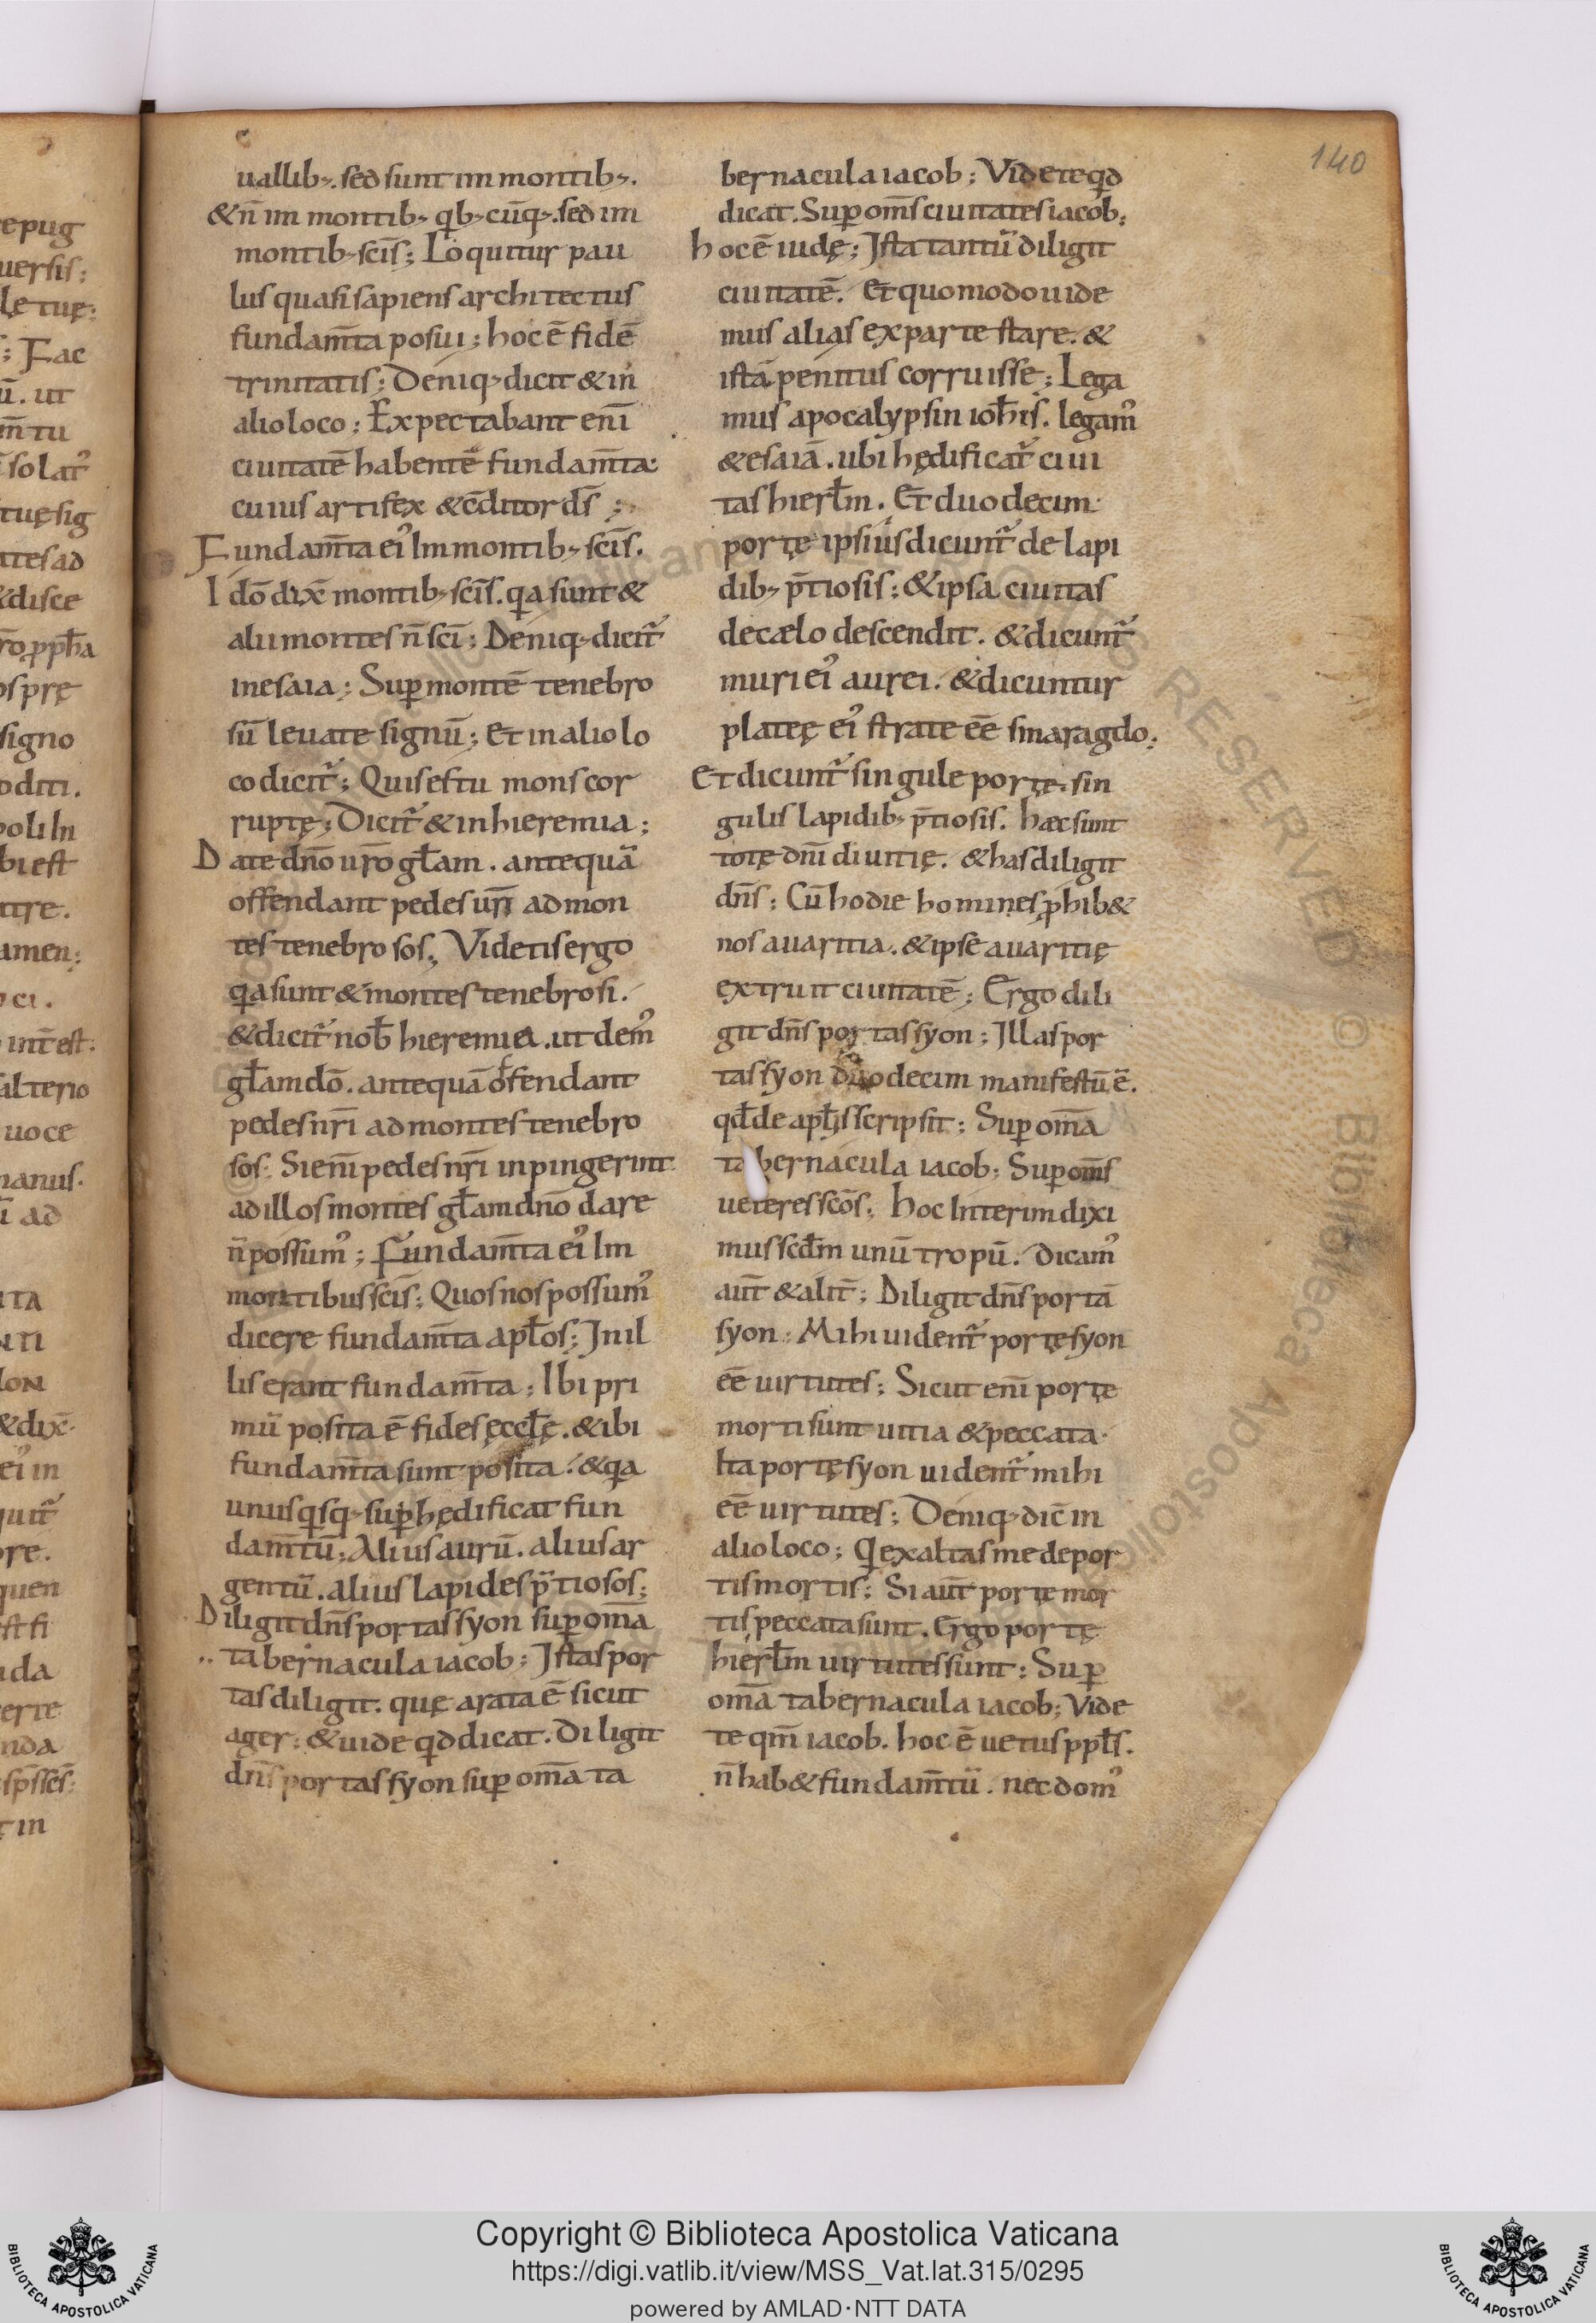 140
uallib⁊. sed sunt im montib⁊.
& n̄ im montib⁊ qb⁊cūq⁊. sed im
montib⁊ scīs; Loquitur pau
lus quasi sapiens architectus
fundam̄ta posui; hoc ē fidē
trinitatis; Deniq⁊ dicit & in
alio loco; Expectabant enī
ciuitatē habentē fundam̄ta:
cuius artifex & c̄ditor ds̄;
Fundam̄ta ei᾽ Im montib⁊ scīs.
Idō dix̄ montib⁊ scīs. qa sunt &
alii montes n̄ scī; Deniq⁊ dicit᾽
in esaia; Sup montē tenebro
sū leuate signū; Et in alio lo
co dicit᾽; Quis es tu mons cor
ruptę; Dicit᾽ & in hieremia;
Date dn̄o ur̄o gl̄am. antequā
offendant pedes ur̄i ad mon
tes tenebrosos; Videtis ergo
qa sunt & montes tenebrosi.
& dicit᾽ nob̄ hieremia. ut dem᾽
gl̄am dō. antequā offendant
pedes nr̄i ad montes tenebro
sos; Si enī pedes nr̄i inpingerint
ad illos montes gl̄am dn̄o dare
n̄ possum᾽; Fundam̄ta ei᾽ Im
montibus scīs; Quos nos possum᾽
dicere fundam̄ta apl̄os; In il
lis erant fundam̄ta; Ibi pri
mū posita ē fides ęccl̄ę. & ibi
fundam̄ta sunt posita. & qa
unusqsq⁊ sup hędificat fun
dam̄tū; Alius aurū. alius ar
gentū. alius lapides p̄tiosos;
Diligit dn̄s portas syon sup om̄a
tabernacula iacob; Istas por
tas diligit. quę arata ē sicut
ager; & uide qd dicat. Diligit
dn̄s portas syon sup om̄a ta
bernacula iacob; Videte qd
dicat. Sup om̄s ciuitates iacob;
hoc ē iudę; Ista tantū diligit
ciuitatē. Et quomodo uide
mus alias ex parte stare. &
istā penitus corruisse; Lega
mus apocalypsin ioh̄is. legam᾽
& esaiā. ubi hędificat᾽ ciui
tas hierl̄m. Et duodecim
portę ipsius dicunt᾽ de lapi
dib⁊ p̄tiosis; & ipsa ciuitas
de cælo descendit. & dicunt᾽
muri ei᾽ aurei. & dicuntur
plateę ei᾽ strate eē smaragdo;
Et dicunt᾽ singule portę. sin
gulis lapidib⁊ p̄tiosis. hæc sunt
totę dn̄i diuitię. & has diligit
dn̄s; Cū hodie homines phib&
nos auaritia. & ipse auaritię
extruit ciuitatē; Ergo dili
git dn̄s portas syon; Illas por
tas syon duodecim manifestū ē.
qd̄ de apl̄is scripsit; Sup om̄a
tabernacula iacob; Sup om̄s
ueteres scōs; hoc Interim dixi
mus scd̄m unū tropū. dicam᾽
aut̄ & alit̄; Diligit dn̄s portā
syon; Mihi uident᾽ portę syon
eē uirtutes; Sicut enī portę
morti sunt uitia & peccata.
Ita portę syon uident᾽ mihi
eē uirtutes; Deniq⁊ dic̄ in
alio loco; Q exaltas me de por
tis mortis; Si aut̄ porte mor
tis peccata sunt. Ergo portę
hierl̄m uirtutes sunt; Sup
om̄a tabernacula iacob; Vide
te qm̄ iacob. hoc ē uetus ppl̄s.
n̄ hab& fundam̄tū. nec dom᾽
Copyright © Biblioteca Apostolica Vaticana
https://digi.vatlib.it/view/MSS_Vat.lat.315/0295
powered by AMLAD·NTT DATA